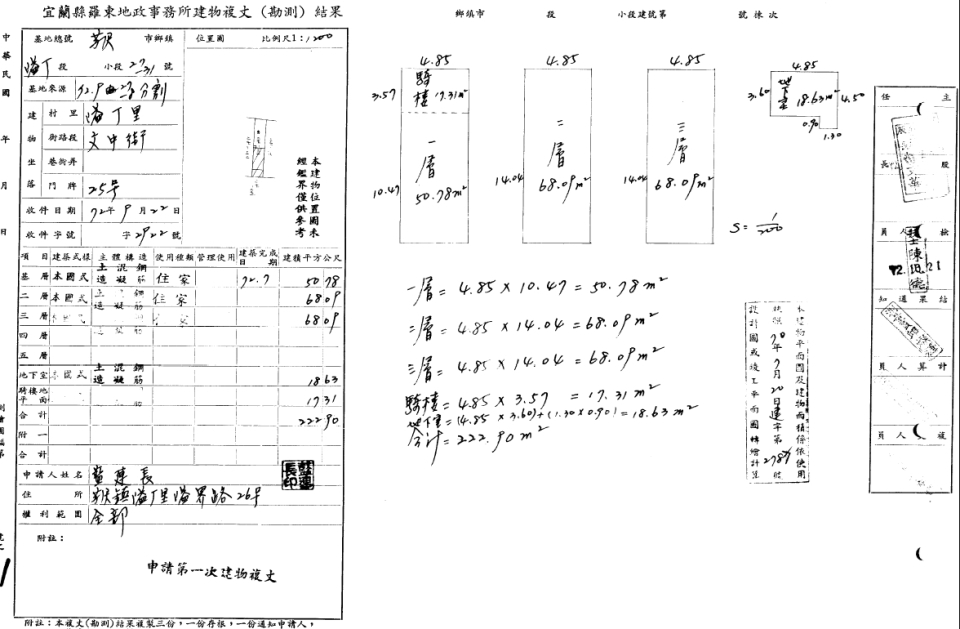 宜蘭縣羅東地政事務所建物複丈(勘測)結果
鄉鎮市 段 小段建號第 號 棟次
中華民國 年 月 日
基地總號 市鄉鎮
段 小段 27-31 號
基地來源 分割
建物坐落
村里 里
街路段 文中街
巷街弄
門牌 25号
收件日期 72年9月22日
收件字號 字2922號
位置圖 比例尺1:1200
本建物位置圖未
經鑑界僅供參考
項目 建築式樣 主體構造 使用種類 管理使用 建築完成日期 建積平方公尺
基層 本國式 土造 混凝 鋼筋 住家 72.7 50 78
二層 本國式 土造 凝 鋼筋 住家 68 09
三層 68 09
四層
五層
地下室 本國式 土造 混凝 鋼筋 18 63
騎樓地平面 17 31
合計 222 90
附一
合計
申請人姓名 長
住所 里 路26号
權利範圍 全部
附註:
申請第一次建物複丈
附註:本複丈(勘測)結果複製三份,一份存根,一份通知申請人,
4.85
騎樓 17.31m²
3.57
一層
50.78m²
10.47
4.85
二層
68.09m²
14.04
4.85
三層
68.09m²
14.04
4.85
3.60
地下室 18.63m²
4.50
0.90
1.30
S=1/200
一層=4.85×10.47=50.78m²
二層=4.85×14.04=68.09m²
三層=4.85×14.04=68.09m²
騎樓=4.85×3.57=17.31m²
地下室=(4.85×3.60)+(1.30×0.90)=18.63m²
合計=222.90m²
本建物平面圖及建物面積係依使用
執照70年7月20日建字第2787號
設計圖或竣工平面圖轉繪計算
主任
股長
檢 人員
結果通知
計算人員
複 人員